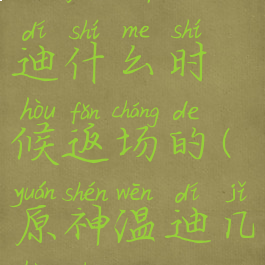 dí shí me shí
迪什么时
hòu fǎn cháng de
候返场的(
yuán shén wēn dí jǐ
原神温迪几